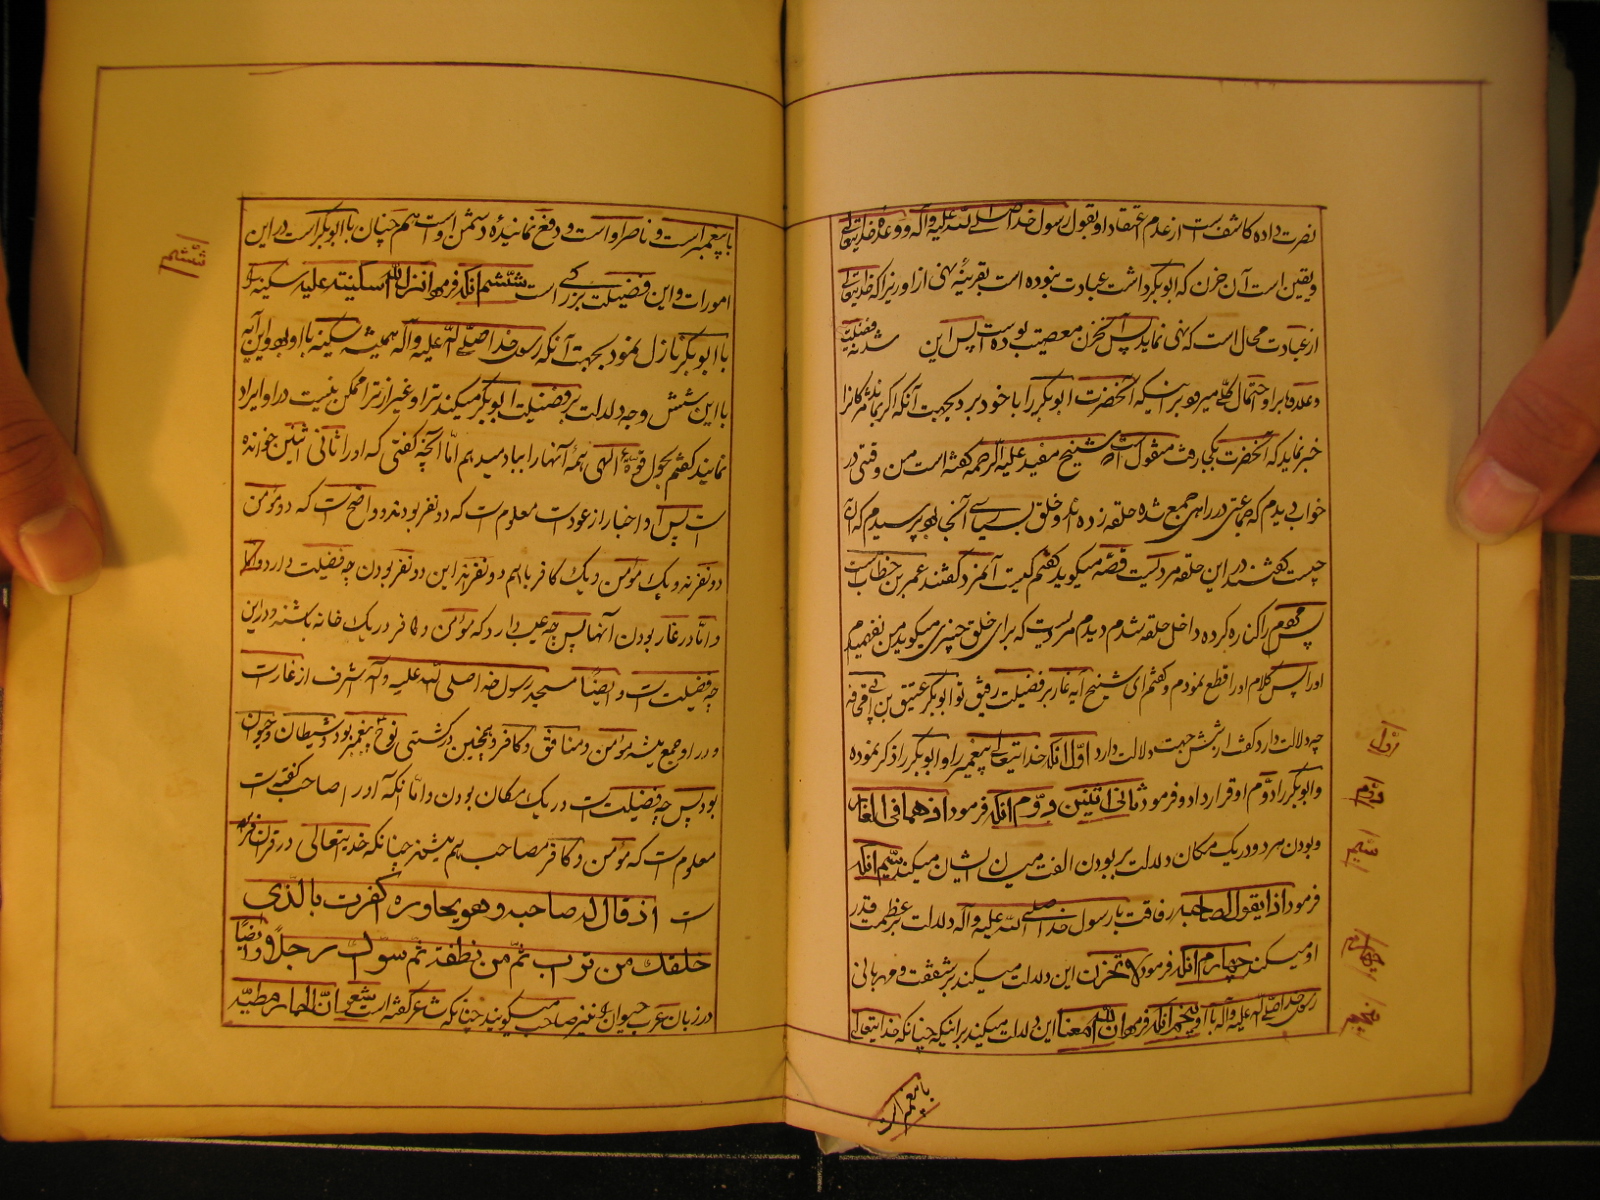 نصرت داده کاشفست از عدم اعتقاد او بقول رسول خدا صلی الله علیه و آله و وعدهٔ خدایتعالی
و یقین است آن حزن که ابوبکر داشت عبادت نبوده است بقرینهٔ نهی از او زیرا که خدایتعالی
از عبادت محال است که نهی نماید پس آنحزن معصیت بوده است پس این فضیلت شد نه
و علاوه بر او احتمال کلی میرود بر اینکه آنحضرت ابوبکر را با خود برد بجهت آنکه اگر بماند مشرکانرا
خبر نماید که آنحضرت بکجا رفت منقول است شیخ مفید علیه الرحمه گفته است من وقتی در
خواب دیدم که جماعتی در راهی جمع شده حلقه زده اند و خلق بسیاری آنجا بود پرسیدم که آن
چیست گفتند در این حلقه مردیست قصّه میگوید گفتم کیست آنمرد گفتند عمر بن خطاب است
پس مردم را کناره کرده داخل حلقه شدم دیدم مردیست که برای خلق چیزی میگوید من نفهمیدم
او را پس کلام او را قطع نمودم و گفتم ای شیخ آیه غار بر فضیلت رفیق تو ابوبکر عتیق بن ابی قحافه
چه دلالت دارد گفت از شش جهت دلالت دارد اوّل آنکه خدایتعالی پیغمبر را و ابوبکر را ذکر نموده
و ابوبکر را دوّم او قرار داد و فرمود ثانی اثنین دوّم آنکه فرمود اذ هما فی الغار
و بودن هر دو در یک مکان دلالت بر بودن الفت میان ایشان میکند سیّم آنکه
فرمود اذ یقول لصاحبه رفاقت با رسول خدا صلی الله علیه و آله دلالت بر عظمت قدر
او میکند چهارم آنکه فرمود لا تحزن این دلالت میکند بر شفقت و مهربانی
رسول خدا صلی الله علیه و آله با او پنجم آنکه فرمود ان الله معنا این دلالت میکند بر اینکه چنانکه خدایتعالی
اوّل
دوّم
سیّم
چهارم
پنجم
با پیغمبر است
با پیغمبر است و ناصر او است و دفع نمایندهٔ دشمن او است هم چنان با ابوبکر است در این
امورات و این فضیلت بزرگی است ششم آنکه فرمود انزل الله سکینته علیه سکینه را
با ابوبکر نازل نمود بجهت آنکه رسول خدا صلّی الله علیه و آله همیشه سکینه با او بود و این آیه
با این شش وجه دلالت بر فضیلت ابوبکر میکند ترا و غیر از ترا ممکن نیست در او ایراد
نمایند گفتم بحول و قوّهٔ الهی همهٔ آنها را بباد میدهم امّا آنچه گفتی که او را ثانی اثنین خوانده
است پس او اخبار از عدد است معلوم است که دو نفر بودند و واضح است که دو مؤمن
دو نفرند و یک مؤمن و یک کافر با هم دو نفرند این دو نفر بودن چه فضیلت دارد و امّا
در غار بودن آنها پس چه عیب دارد که مؤمن و کافر در یک خانه باشند و در این
چه فضیلت است و ایضاً مسجد رسول خدا صلی الله علیه و آله اشرف از غار است
و در او جمع میشد مؤمن و منافق و کافر و همچنین در کشتی نوح پیغمبر بود و شیطان و حیوان
بود پس چه فضیلت است در یک مکان بودن و امّا آنکه او را صاحب گفته است
معلوم است که مؤمن و کافر مصاحب هم میشوند چنانکه خدایتعالی در قرآن فرموده
است اذ قال له صاحبه و هو یحاوره کفرت بالّذی
خلقک من تراب ثمّ من نطفة ثم سوّاک رجلاً و ایضاً
در زبان عرب حیوان را نیز صاحب میگویند چنانکه شاعر گفته است شعر انّ الحمار مطیّه
ششم